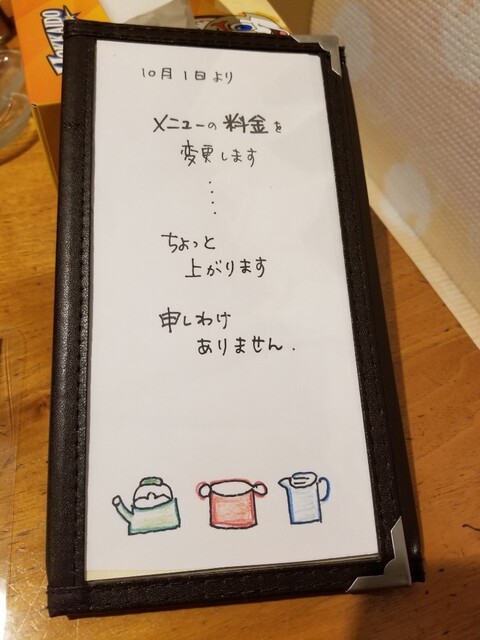 HOKKAIDO
10月1日より
メニューの料金を
変更します
・・・・
ちょっと
上がります
申しわけ
ありません.